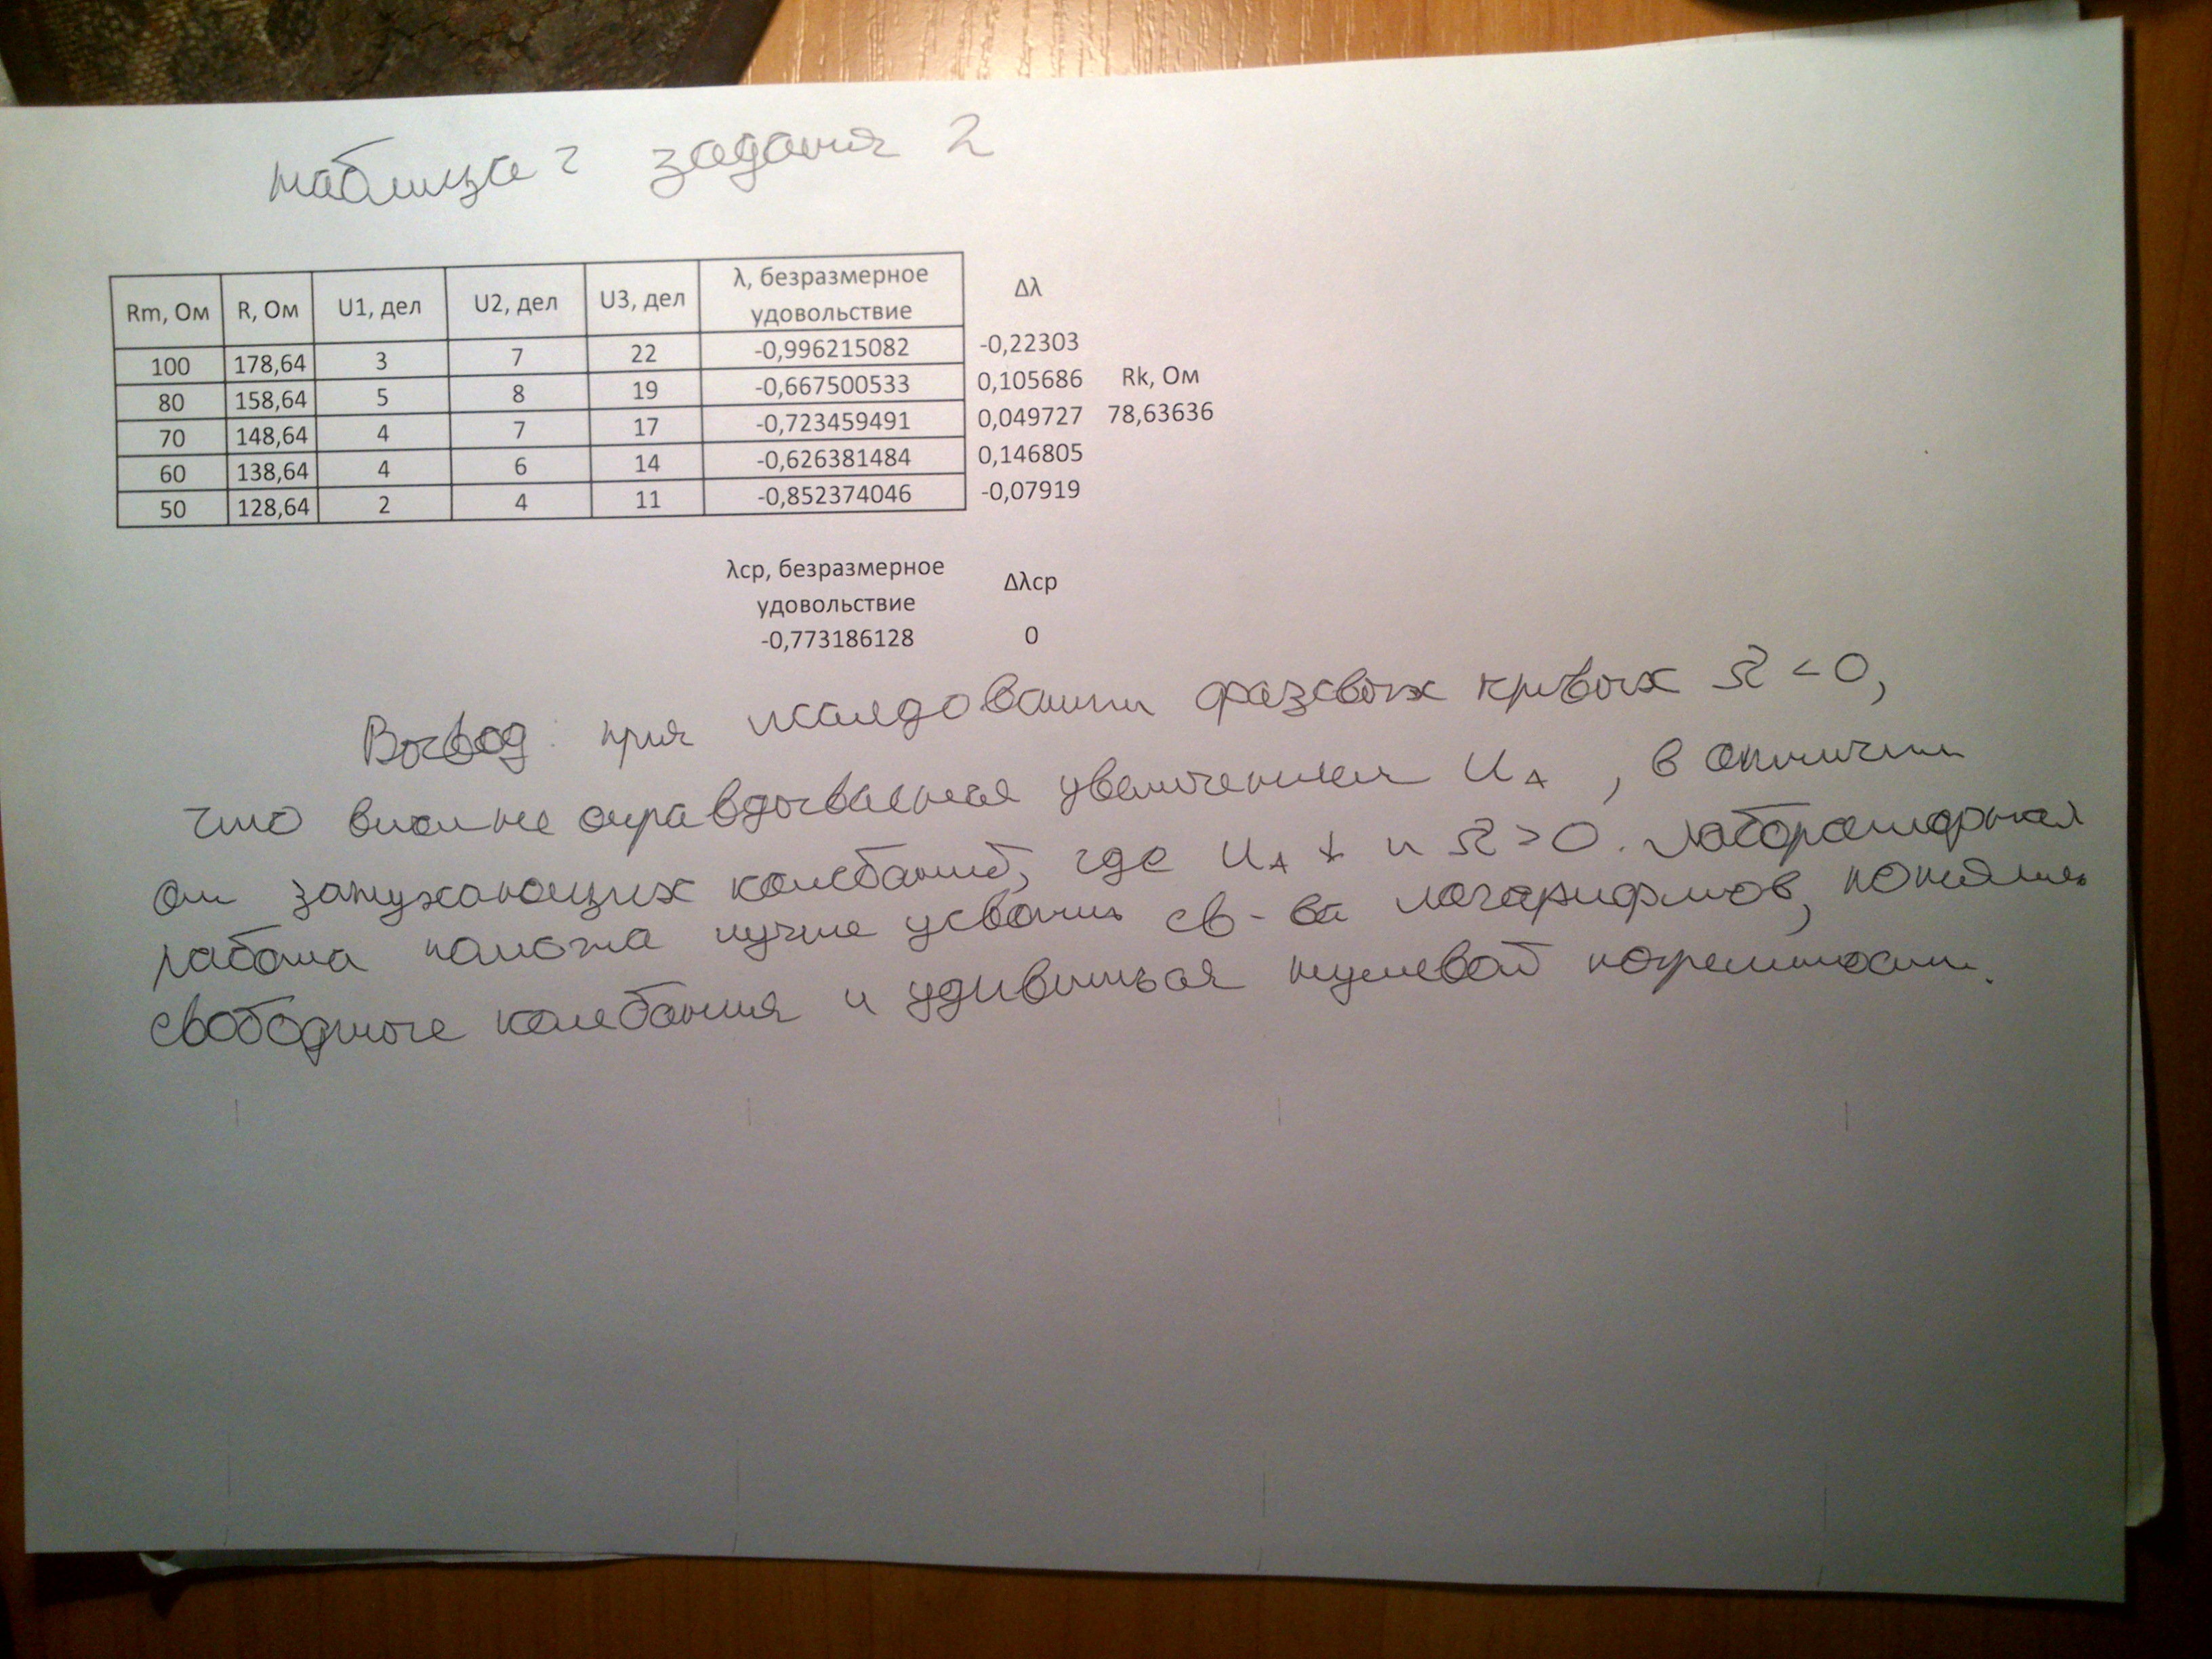 таблица 2 задания 2
Rm, Ом R, Ом U1, дел U2, дел U3, дел λ, безразмерное удовольствие Δλ
100 178,64 3 7 22 -0,996215082 -0,22303
80 158,64 5 8 19 -0,667500533 0,105686 Rk, Ом
70 148,64 4 7 17 -0,723459491 0,049727 78,63636
60 138,64 4 6 14 -0,626381484 0,146805
50 128,64 2 4 11 -0,852374046 -0,07919
λср, безразмерное Δλср
удовольствие
-0,773186128 0
Вывод: при исследовании фазовых кривых < 0,
что вполне оправдывается увеличением U
, в отличии
от затухающих колебаний, где U и > 0. Лабораторная
работа помогла лучше усвоить св-ва логарифмов, понять
свободные колебания и удивиться нулевой погрешности.